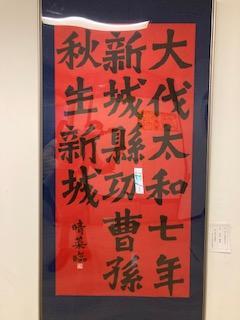 大代太和七年
新城縣功曹孫
秋生新城
晴葉臨